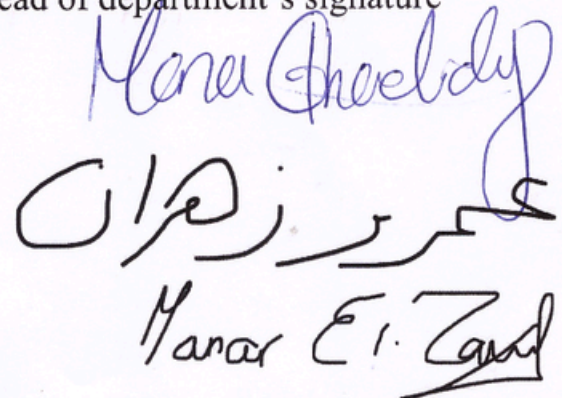 ead of department's signature
Mona Ghoelidy
زهران
Manar El. Zayd